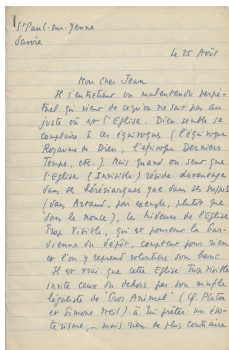 St Paul-sur-Yenne
Savoie
le 25 Août
Mon cher Jean
Il s'entretient un malentendu perpé-
tuel qui vient de ce qu'on ne sait pas au
juste où est l'Eglise. Dieu semble se
complaire à ces équivoques (l'équivoque
Royaume de Dieu, l'équivoque Derniers
Temps, etc.). Mais quand on sent que
l'Eglise (Invisible) réside davantage
dans ses hérésiarques que dans ses
(dans Artaud, par exemple, plutôt que
dans le nonce), les hideurs de l'Eglise
Trop Visible, qui est pourtant la Gar-
dienne du dépôt, comptent pour rien
et l'on y reprend volontiers son banc.
Il est vrai que cette Eglise Trop Visible
invite ceux du dehors par son mufle
légaliste de "Gros Animal" (cf. Platon
et Simone Weil) à lui prêter un éso-
térisme, – mais rien de plus contraire